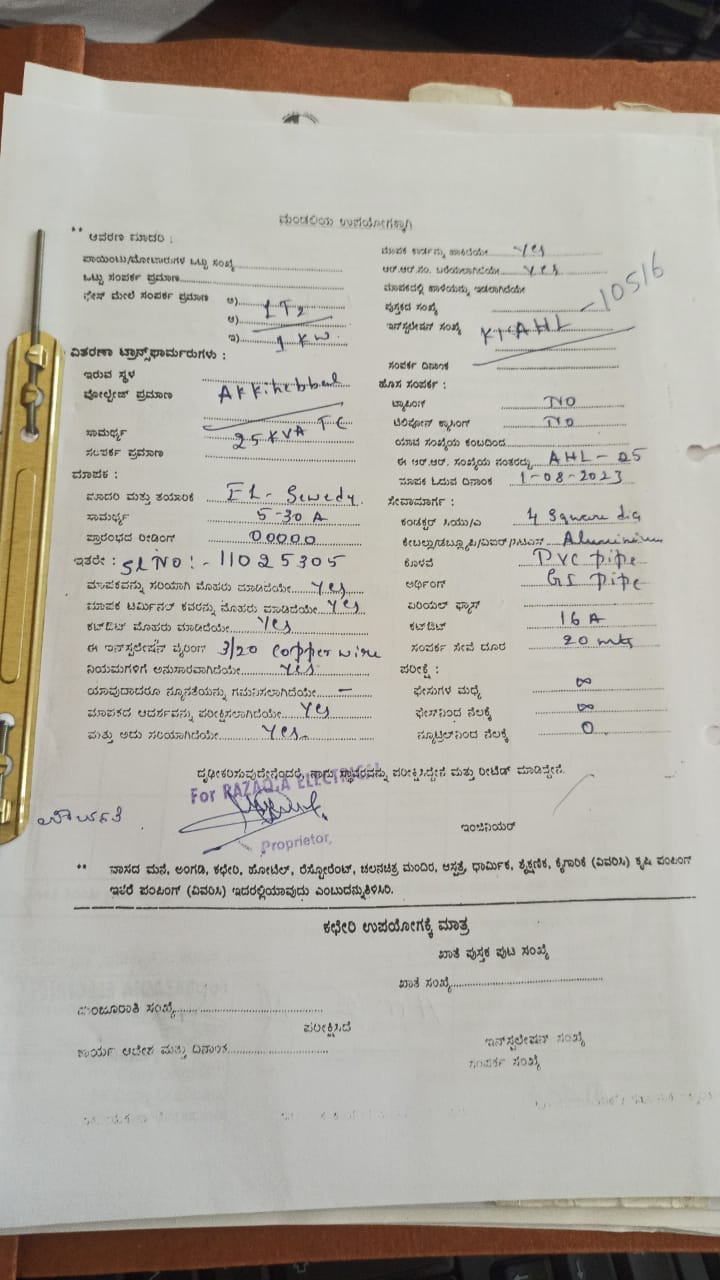 ಮಂಡಳಿಯ ಉಪಯೋಗಕ್ಕಾಗಿ
** ಆವರಣ ಮಾದರಿ :
ಪಾಯಿಂಟು/ಮೋಟಾರುಗಳ ಒಟ್ಟು ಸಂಖ್ಯೆ
ಒಟ್ಟು ಸಂಪರ್ಕ ಪ್ರಮಾಣ
ಫೇಸ್ ಮೇಲೆ ಸಂಪರ್ಕ ಪ್ರಮಾಣ ಅ)
ಆ)
ಇ) 1 KW.
ವಿತರಣಾ ಟ್ರಾನ್ಸ್‌ಫಾರ್ಮರುಗಳು :
ಇರುವ ಸ್ಥಳ
ವೋಲ್ಟೇಜ್ ಪ್ರಮಾಣ Akkihebbal
ಸಾಮರ್ಥ್ಯ 25 KVA TC
ಸಂಪರ್ಕ ಪ್ರಮಾಣ
ಮಾಪಕ :
ಮಾದರಿ ಮತ್ತು ತಯಾರಿಕೆ EL-Sewedy
ಸಾಮರ್ಥ್ಯ 5-30 A
ಪ್ರಾರಂಭದ ರೀಡಿಂಗ್ 00000
ಇತರೇ : Sl NO:- 11025305
ಮಾಪಕವನ್ನು ಸರಿಯಾಗಿ ಮೊಹರು ಮಾಡಿದೆಯೇ Yes
ಮಾಪಕ ಟರ್ಮಿನಲ್ ಕವರನ್ನು ಮೊಹರು ಮಾಡಿದೆಯೇ Yes
ಕಟ್‌ಔಟ್ ಮೊಹರು ಮಾಡಿದೆಯೇ Yes
ಈ ಇನ್‌ಸ್ಟಲೇಷನ್ ವೈರಿಂಗ್ 3/20 Copper wire
ನಿಯಮಗಳಿಗೆ ಅನುಸಾರವಾಗಿದೆಯೇ Yes
ಯಾವುದಾದರೂ ನ್ಯೂನತೆಯನ್ನು ಗಮನಿಸಲಾಗಿದೆಯೇ —
ಮಾಪಕದ ಆದರ್ಶವನ್ನು ಪರೀಕ್ಷಿಸಲಾಗಿದೆಯೇ Yes
ಮತ್ತು ಅದು ಸರಿಯಾಗಿದೆಯೇ Yes
ಮಾಪಕ ಕಾರ್ಡನ್ನು ಹಾಕಿದೆಯೇ Yes
ಆರ್.ಆರ್.ನಂ. ಬರೆಯಲಾಗಿದೆಯೇ Yes
ಮಾಪಕದಲ್ಲಿ ಹಾಳೆಯನ್ನು ಇಡಲಾಗಿದೆಯೇ
ಪುಸ್ತಕದ ಸಂಖ್ಯೆ
ಇನ್‌ಸ್ಟಲೇಷನ್ ಸಂಖ್ಯೆ KTAHL -10516
ಸಂಪರ್ಕ ದಿನಾಂಕ
ಹೊಸ ಸಂಪರ್ಕ :
ಟ್ಯಾಪಿಂಗ್ NO
ಟೆಲಿಫೋನ್ ಕ್ರಾಸಿಂಗ್ NO
ಯಾವ ಸಂಖ್ಯೆಯ ಕಂಬದಿಂದ
ಈ ಆರ್.ಆರ್. ಸಂಖ್ಯೆಯ ನಂತರದ್ದು AHL-25
ಮಾಪಕ ಓದುವ ದಿನಾಂಕ 1-08-2023
ಸೇವಾಮಾರ್ಗ :
ಕಂಡಕ್ಟರ್ ಸಿಯು/ಎ 4 Square dia
Aluminium
ಕೊಳವೆ PVC pipe
ಅರ್ಥಿಂಗ್ GI pipe
ಏರಿಯಲ್ ಫ್ಯೂಸ್
ಕಟ್‌ಔಟ್ 16 A
ಸಂಪರ್ಕ ಸೇವೆ ದೂರ 20 mts
ಪರೀಕ್ಷೆ :
ಫೇಸುಗಳ ಮಧ್ಯೆ ∞
ಫೇಸ್‌ನಿಂದ ನೆಲಕ್ಕೆ ∞
ನ್ಯೂಟ್ರಲ್‌ನಿಂದ ನೆಲಕ್ಕೆ 0
ದೃಢೀಕರಿಸುವುದೇನೆಂದರೆ, ನಾನು ಸ್ಥಾವರವನ್ನು ಪರೀಕ್ಷಿಸಿದ್ದೇನೆ ಮತ್ತು ರೀಟೆಡ್ ಮಾಡಿದ್ದೇನೆ.
For RAZAQIA ELECTRICAL
Proprietor,
ಇಂಜಿನಿಯರ್
** ವಾಸದ ಮನೆ, ಅಂಗಡಿ, ಕಛೇರಿ, ಹೋಟೆಲ್, ರೆಸ್ಟೋರೆಂಟ್, ಚಲನಚಿತ್ರ ಮಂದಿರ, ಆಸ್ಪತ್ರೆ, ಧಾರ್ಮಿಕ, ಶೈಕ್ಷಣಿಕ, ಕೈಗಾರಿಕೆ (ವಿವರಿಸಿ) ಕೃಷಿ ಪಂಪಿಂಗ್
ಇತರೆ ಪಂಪಿಂಗ್ (ವಿವರಿಸಿ) ಇದರಲ್ಲಿಯಾವುದು ಎಂಬುದನ್ನುತಿಳಿಸಿರಿ.
ಕಛೇರಿ ಉಪಯೋಗಕ್ಕೆ ಮಾತ್ರ
ಖಾತೆ ಪುಸ್ತಕ ಪುಟ ಸಂಖ್ಯೆ
ಖಾತೆ ಸಂಖ್ಯೆ
ಮಂಜೂರಾತಿ ಸಂಖ್ಯೆ
ಪರೀಕ್ಷಿಸಿದೆ
ಕಾರ್ಯ ಆದೇಶ ಮತ್ತು ದಿನಾಂಕ
ಇನ್‌ಸ್ಟಲೇಷನ್ ಸಂಖ್ಯೆ
ಸಂಪರ್ಕ ಸಂಖ್ಯೆ